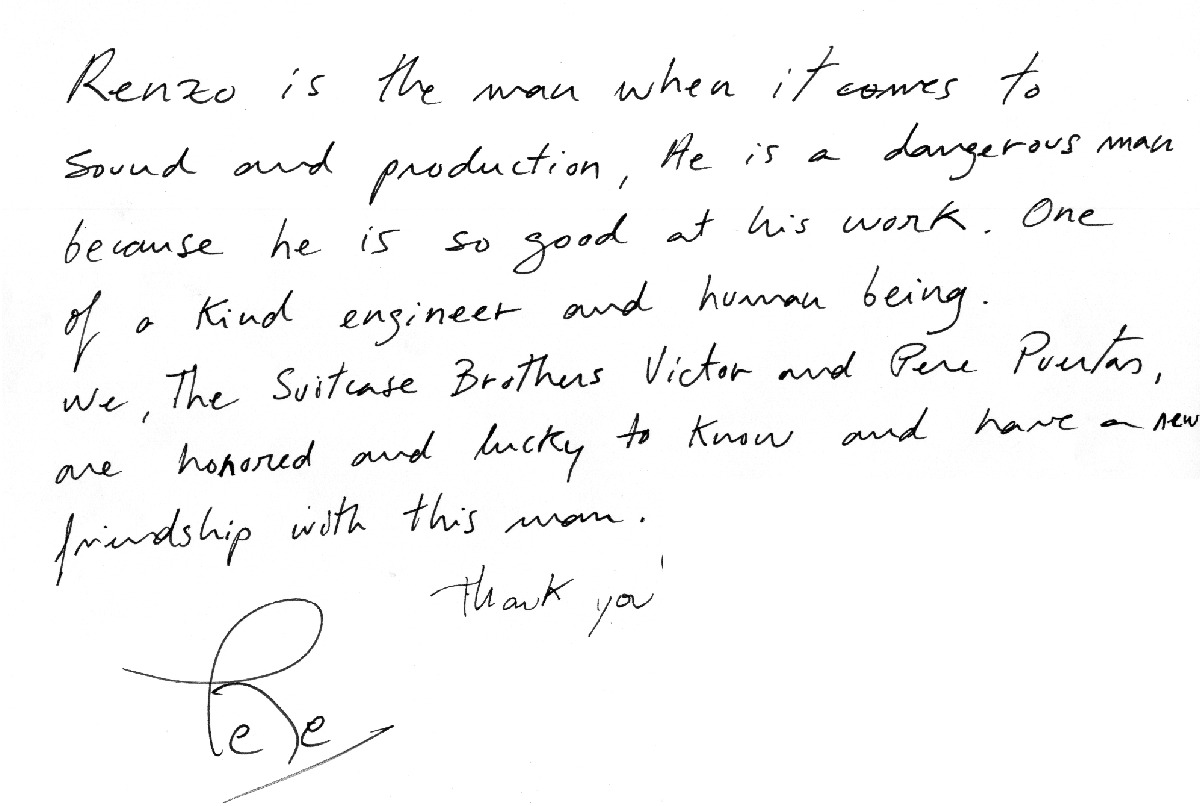 Renzo is the man when it comes to
sound and production, He is a dangerous man
because he is so good at his work. One
of a Kind engineer and human being.
We, The Suitcase Brothers Victor and Pere Puertas,
are honored and lucky to Know and have a new
friendship with this man.
Thank you
Pere